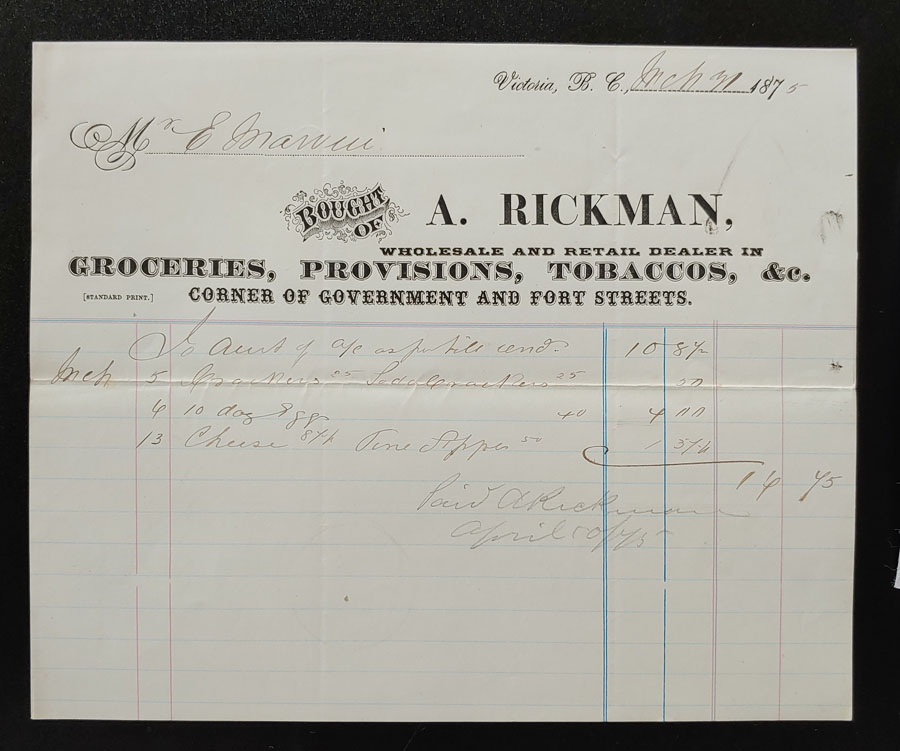 Victoria, B. C., Mch 31 1875
Mr E Marvin
BOUGHT OF A. RICKMAN,
WHOLESALE AND RETAIL DEALER IN
GROCERIES, PROVISIONS, TOBACCOS, &c.
[STANDARD PRINT.] CORNER OF GOVERNMENT AND FORT STREETS.
To Amt of a/c as per bill rend. 10 87½
Mch 5 Crackers 25 Soda Crackers 25 50
6 10 doz Eggs 40 4 00
13 Cheese 87½ Pine Apper 50 1 37½
16 75
Paid A Rickman
April